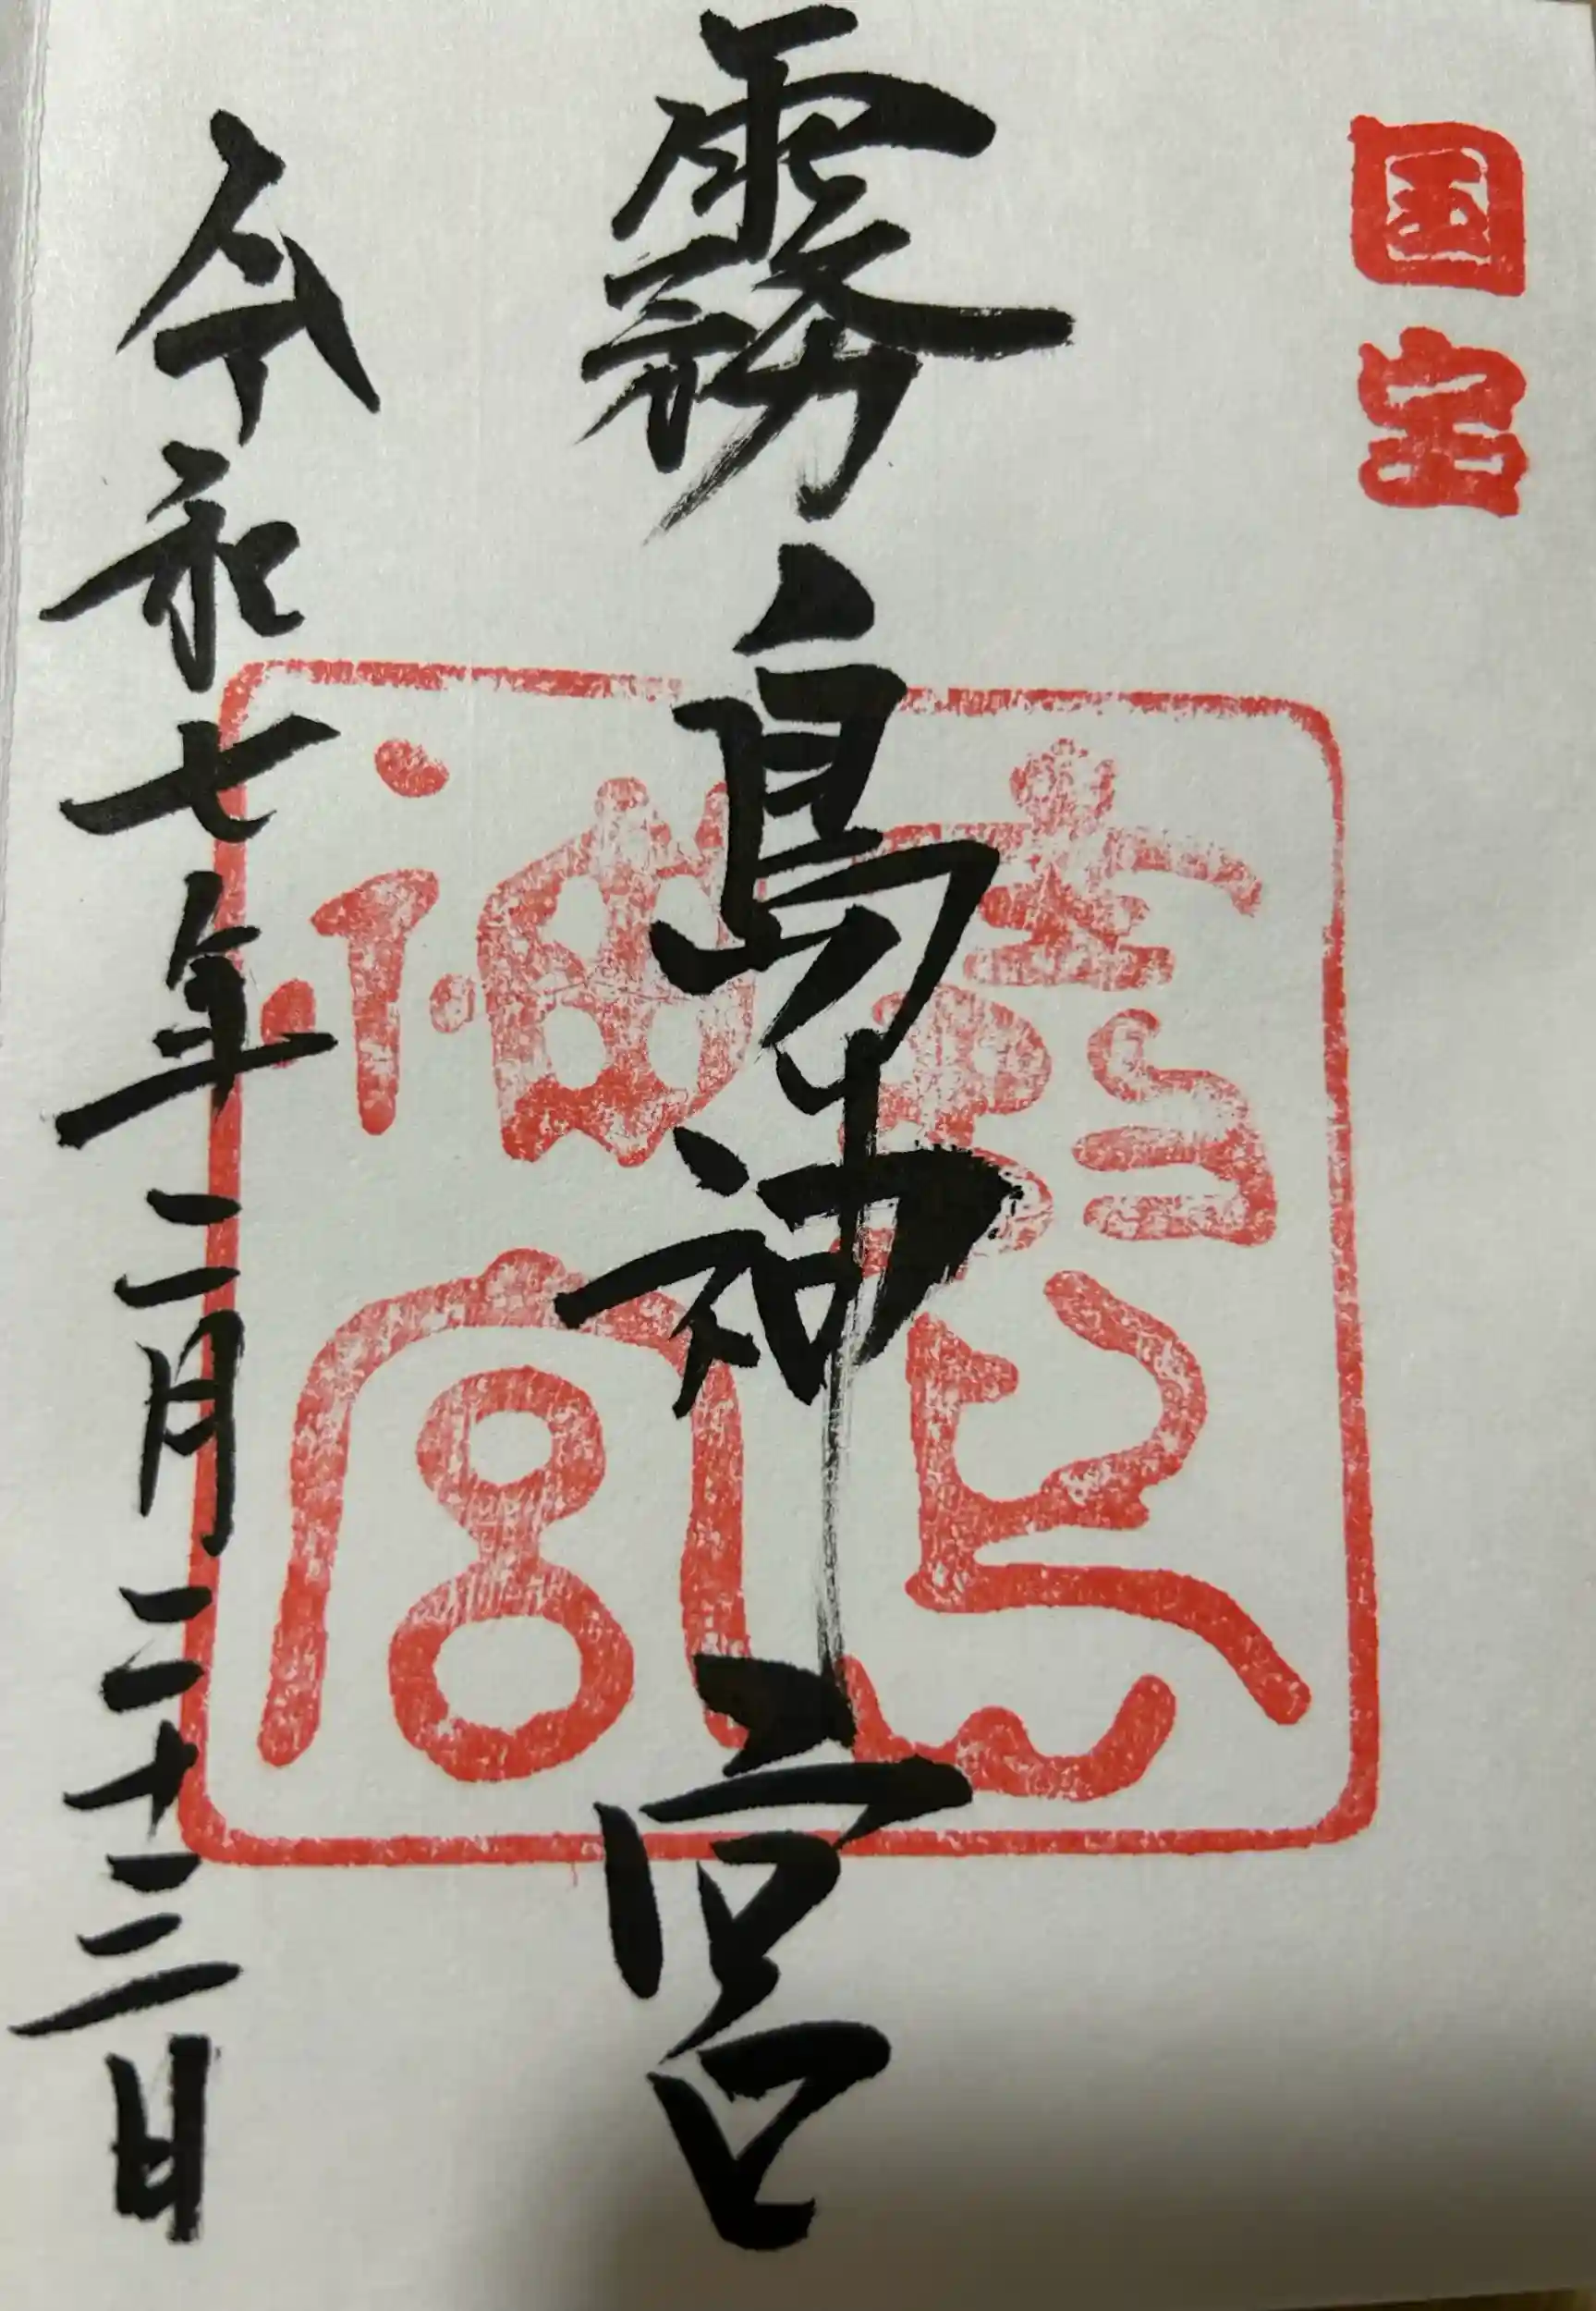 国宝
霧島神宮
霧島
神宮
令和七年二月二十三日